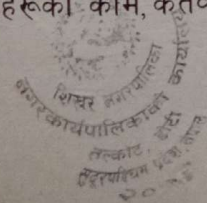 हरूको काम, कर्तव
शिखर नगरपालिका
नगरकार्यपालिकाको कार्यालय
तल्कोट, डोटी
सुदूरपश्चिम प्रदेश, नेपाल